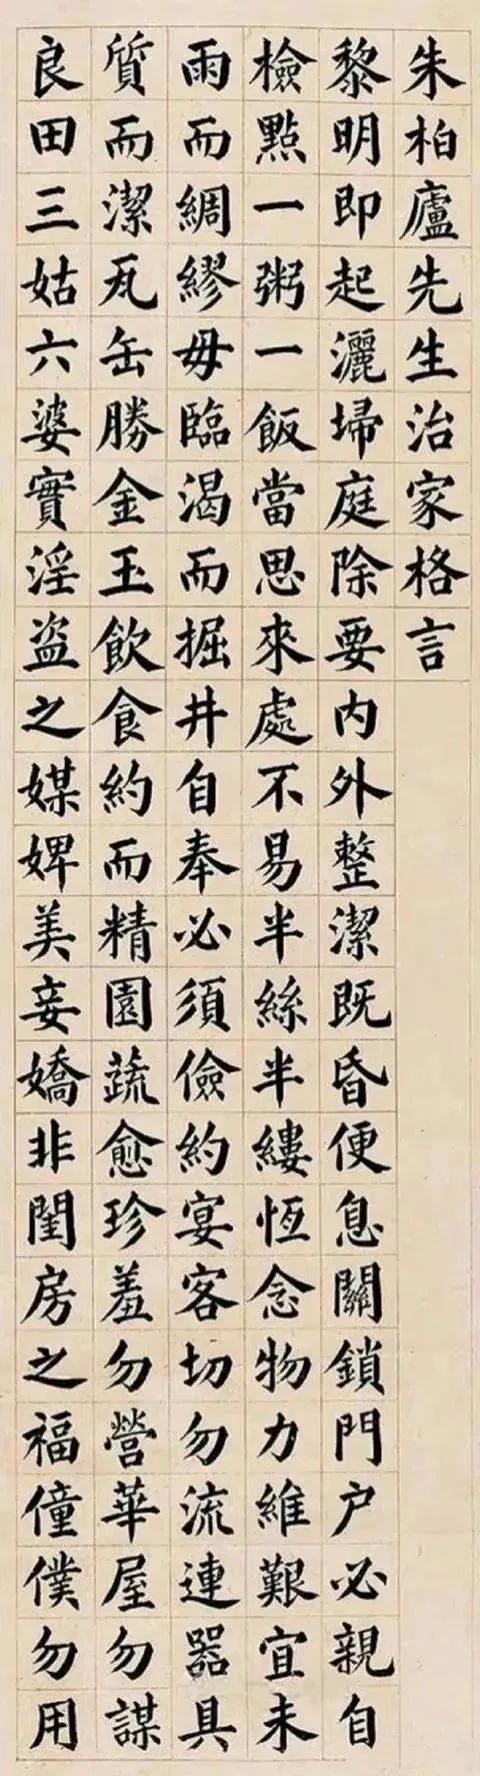 朱柏廬先生治家格言
黎明即起灑埽庭除要内外整潔既昏便息關鎖門户必親自
檢點一粥一飯當思來處不易半絲半縷恆念物力維艱宜未
雨而綢繆毋臨渴而掘井自奉必須儉約宴客切勿流連器具
質而潔瓦缶勝金玉飲食約而精園蔬愈珍羞勿營華屋勿謀
良田三姑六婆實淫盗之媒婢美妾嬌非閨房之福僮僕勿用